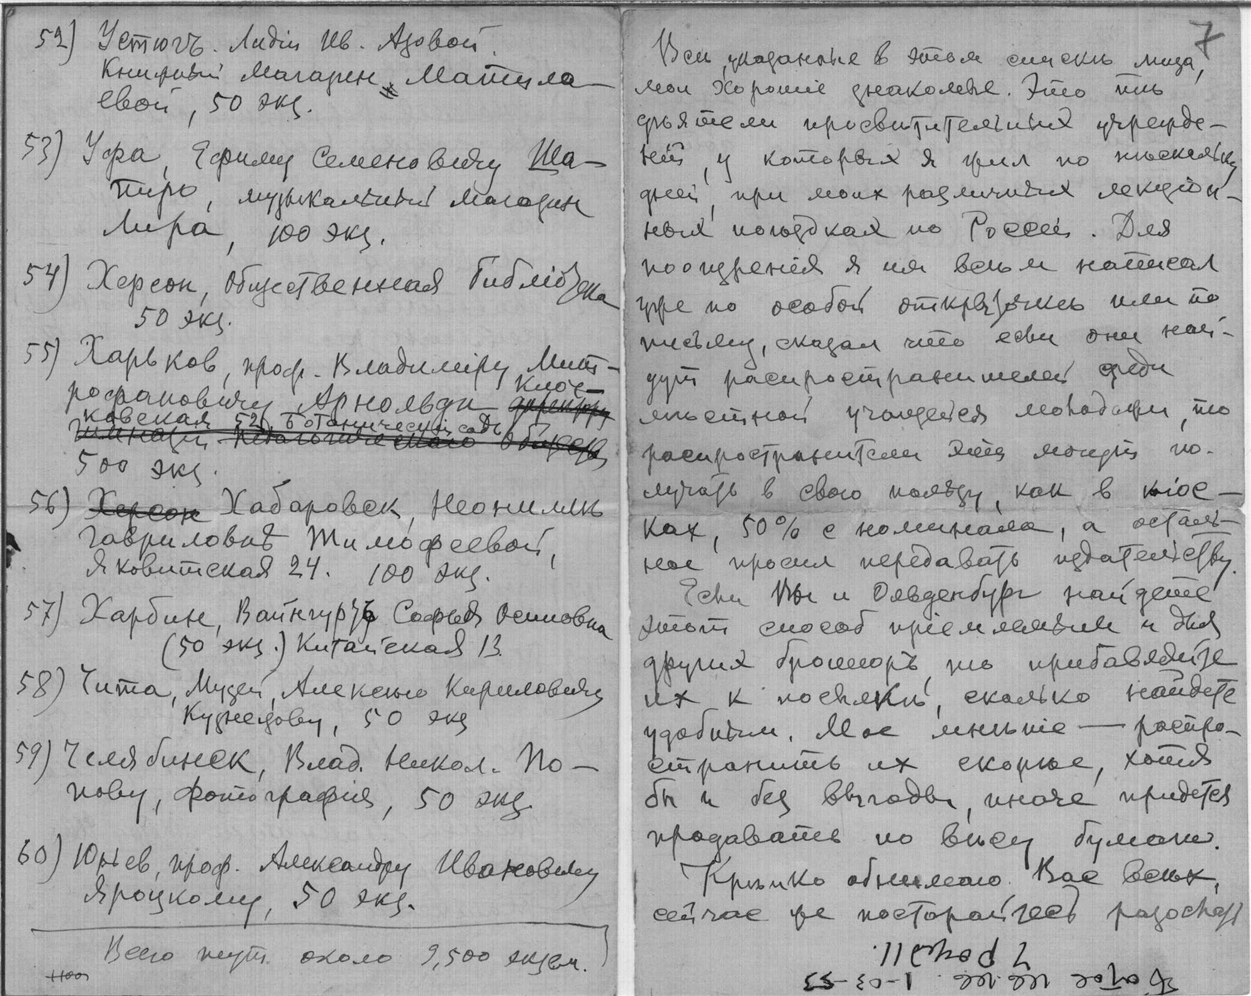 52) Устюгъ. Лидіи Ив. Азовой.
Книжный магазин Матила-
евой, 50 экз.
53) Уфа, Ефиму Семеновичу Ша-
пиро, музыкальный магазин
Лира, 100 экз.
54) Херсон, Общественная библіотека
50 экз.
55) Харьков, проф. Владиміру Мит-
рофановичу Арнольди Клоч-
ковская 52, Ботанический садъ
500 экз.
56) Херсон Хабаровск, Неонилѣ
Гавриловнѣ Тимофеевой,
Яковитская 24. 100 экз.
57) Харбин, Вайнгуртъ Софья Осиповна
(50 экз.) Китайская 13.
58) Чита, Музей, Алексѣю Кириловичу
Кузнецову, 50 экз
59) Челябинск, Влад. Никол. По-
пову, фотографія, 50 экз
60) Юрьев, проф. Александру Ивановичу
Яроцкому, 50 экз.
Всего нут. около 9,500 экзем.
7
Всѣ указанные в этом спискѣ лица,
мои хорошіе знакомые. Это тѣ
дѣятели просвѣтительных учрежде-
ній, у которых я жил по нѣскольку
дней, при моих различных лекціон-
ных поѣздках по Россіи. Для
поощренія я им всѣм написал
уже по особой открыткѣ или по
письму, сказал что если они най-
дут распространителей среди
мѣстной учащейся молодежи, то
распространители эти могут по-
лучать в свою пользу, как в кіос-
ках, 50% с номинала, а осталь-
ное просил передавать издательству.
Если Вы и Ольденбург найдете
этот способ пріемлемым и для
других брошюръ, то прибавляйте
их к посылкѣ, сколько найдете
удобным. Мое мнѣніе — распро-
странить их скорѣе, хотя
бы и без выгоды, иначе придется
продавать по вѣсу бумаги.
Крѣпко обнимаю Вас всѣх,
сейчас же постарайтесь разослать
1-03-53